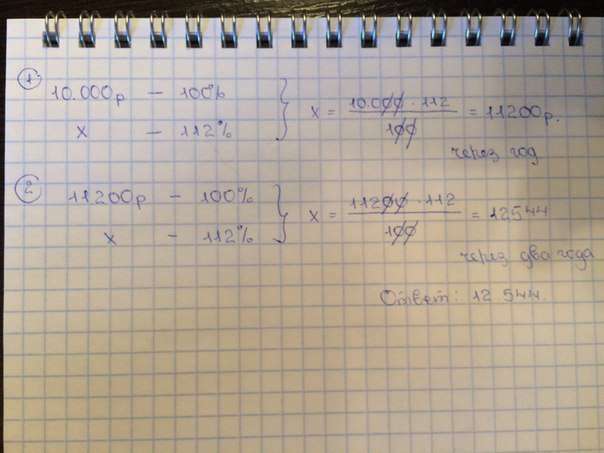 1
10.000р - 100%
x - 112%
x = 10.000 · 112 / 100 = 11200р.
через год
2
11200р - 100%
x - 112%
x = 11200 · 112 / 100 = 12544
через два года
Ответ: 12 544.